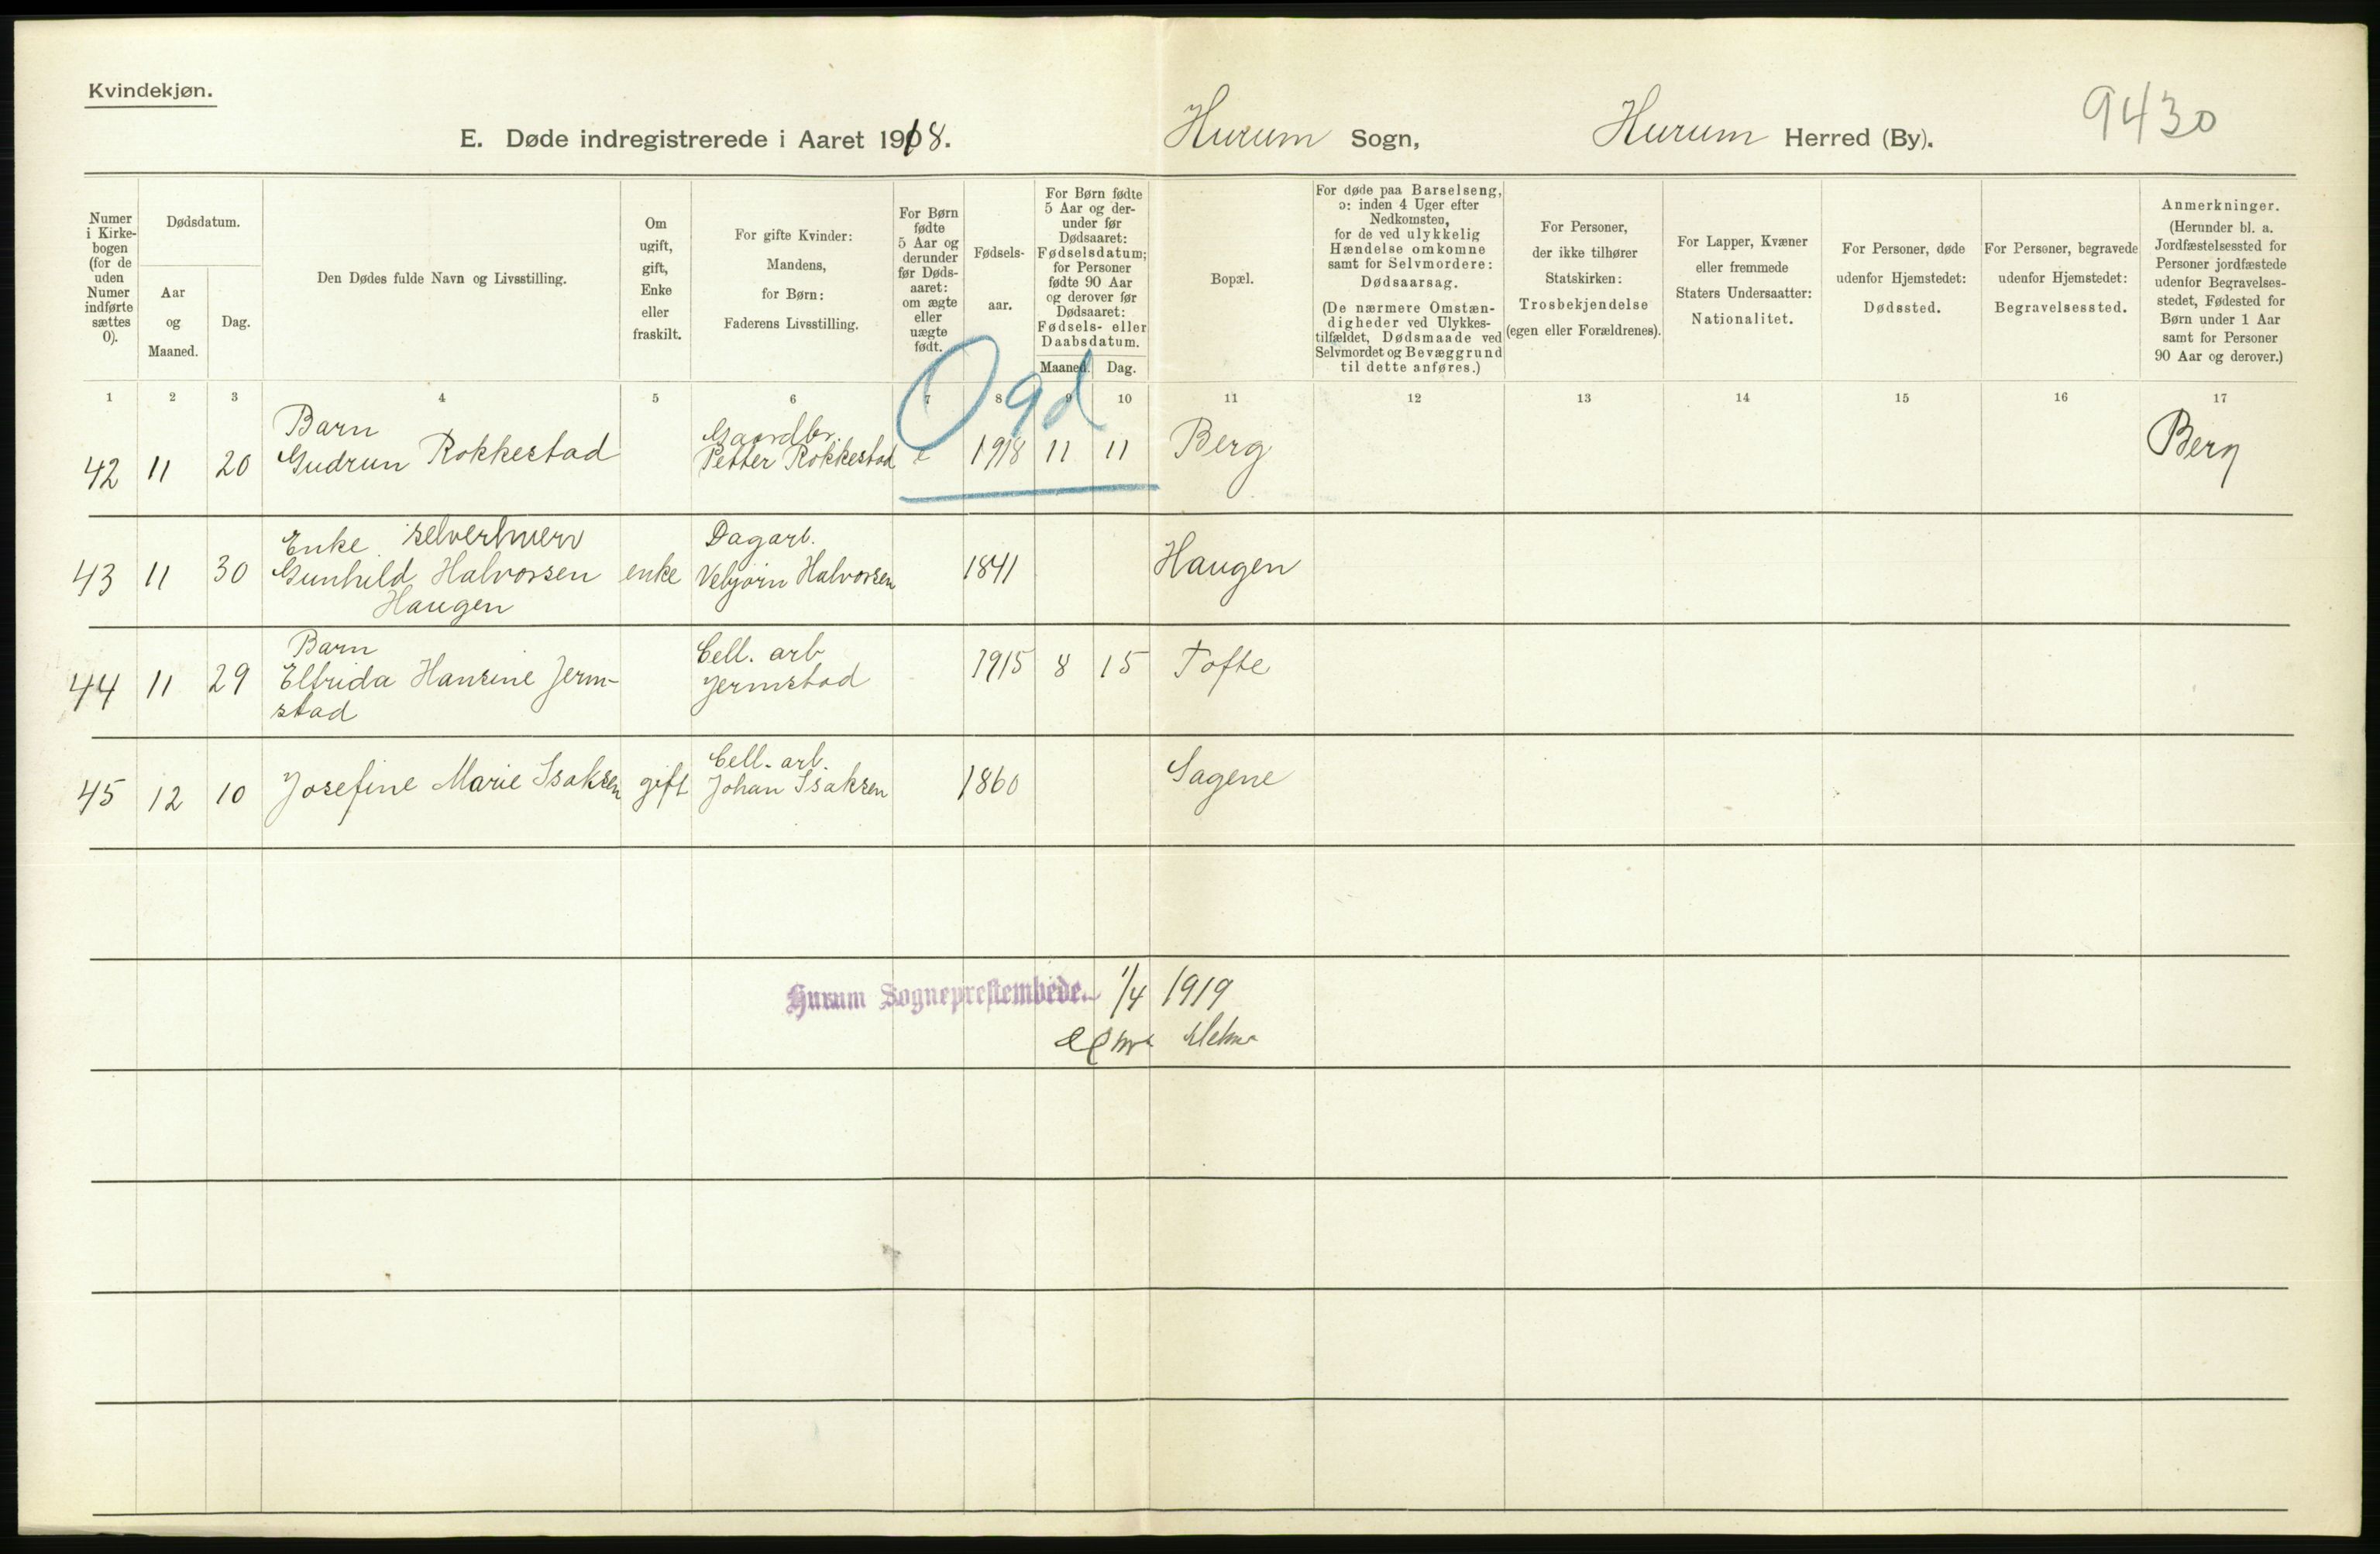 Kvindekjøn.
E. Døde indregistrerede i Aaret 1918. Hurum Sogn, Hurum Herred (By). 9430
Numer i Kirke-bogen (for de uden Numer indførte sættes 0).
Dødsdatum.
Aar og Maaned.
Dag.
Den Dødes fulde Navn og Livsstilling.
Om ugift, gift, Enke eller fraskilt.
For gifte Kvinder: Mandens, for Børn: Faderens Livsstilling.
For Børn fødte 5 Aar og derunder før Døds-aaret: om ægte eller uægte født.
Fødsels-aar.
For Børn fødte 5 Aar og der-under før Dødsaaret: Fødselsdatum; for Personer fødte 90 Aar og derover før Dødsaaret: Fødsels- eller Daabsdatum.
Maaned. Dag.
Bopæl.
For døde paa Barselseng, ɔ: inden 4 Uger efter Nedkomsten, for de ved ulykkelig Hændelse omkomne samt for Selvmordere: Dødsaarsag.
(De nærmere Omstæn-digheder ved Ulykkes-tilfældet, Dødsmaade ved Selvmordet og Bevæggrund til dette anføres.)
For Personer, der ikke tilhører Statskirken: Trosbekjendelse (egen eller Forældrenes).
For Lapper, Kvæner eller fremmede Staters Undersaatter: Nationalitet.
For Personer, døde udenfor Hjemstedet: Dødssted.
For Personer, begravede udenfor Hjemstedet: Begravelsessted.
Anmerkninger.
(Herunder bl. a. Jordfæstelsessted for Personer jordfæstede udenfor Begravelses-stedet, Fødested for Børn under 1 Aar samt for Personer 90 Aar og derover.)
1 2 3 4 5 6 7 8 9 10 11 12 13 14 15 16 17
Barn Gaardbr.
42 11 20 Gudrun Rokkestad Petter Rokkestad e 1918 11 11 Berg Berg
Enke Dagarb.
43 11 30 Gunhild Halvorsen enke Vebjørn Halvorsen 1841 Haugen
Haugen
Barn Cell. arb
44 11 29 Elfrida Hansine Jerm- Jermstad 1915 8 15 Tofte
stad
Cell. arb.
45 12 10 Josefine Marie Isaksen gift Johan Isaksen 1860 Sagene
Hurum Sogneprestembede. 1/4 1919